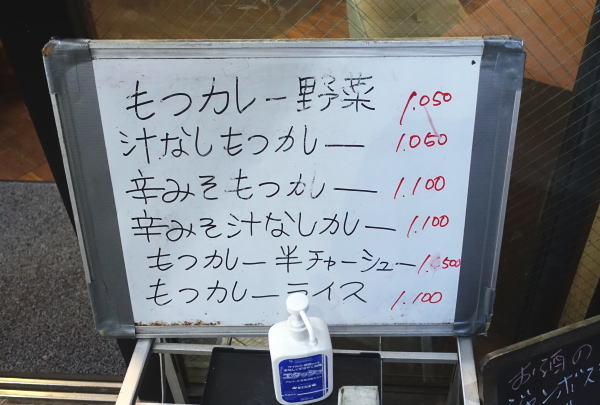 もつカレー野菜 1.050
汁なしもつカレー 1.050
辛みそもつカレー 1.100
辛みそ汁なしカレー 1.100
もつカレー半チャーシュー 1.500
もつカレーライス 1.100
お酒の